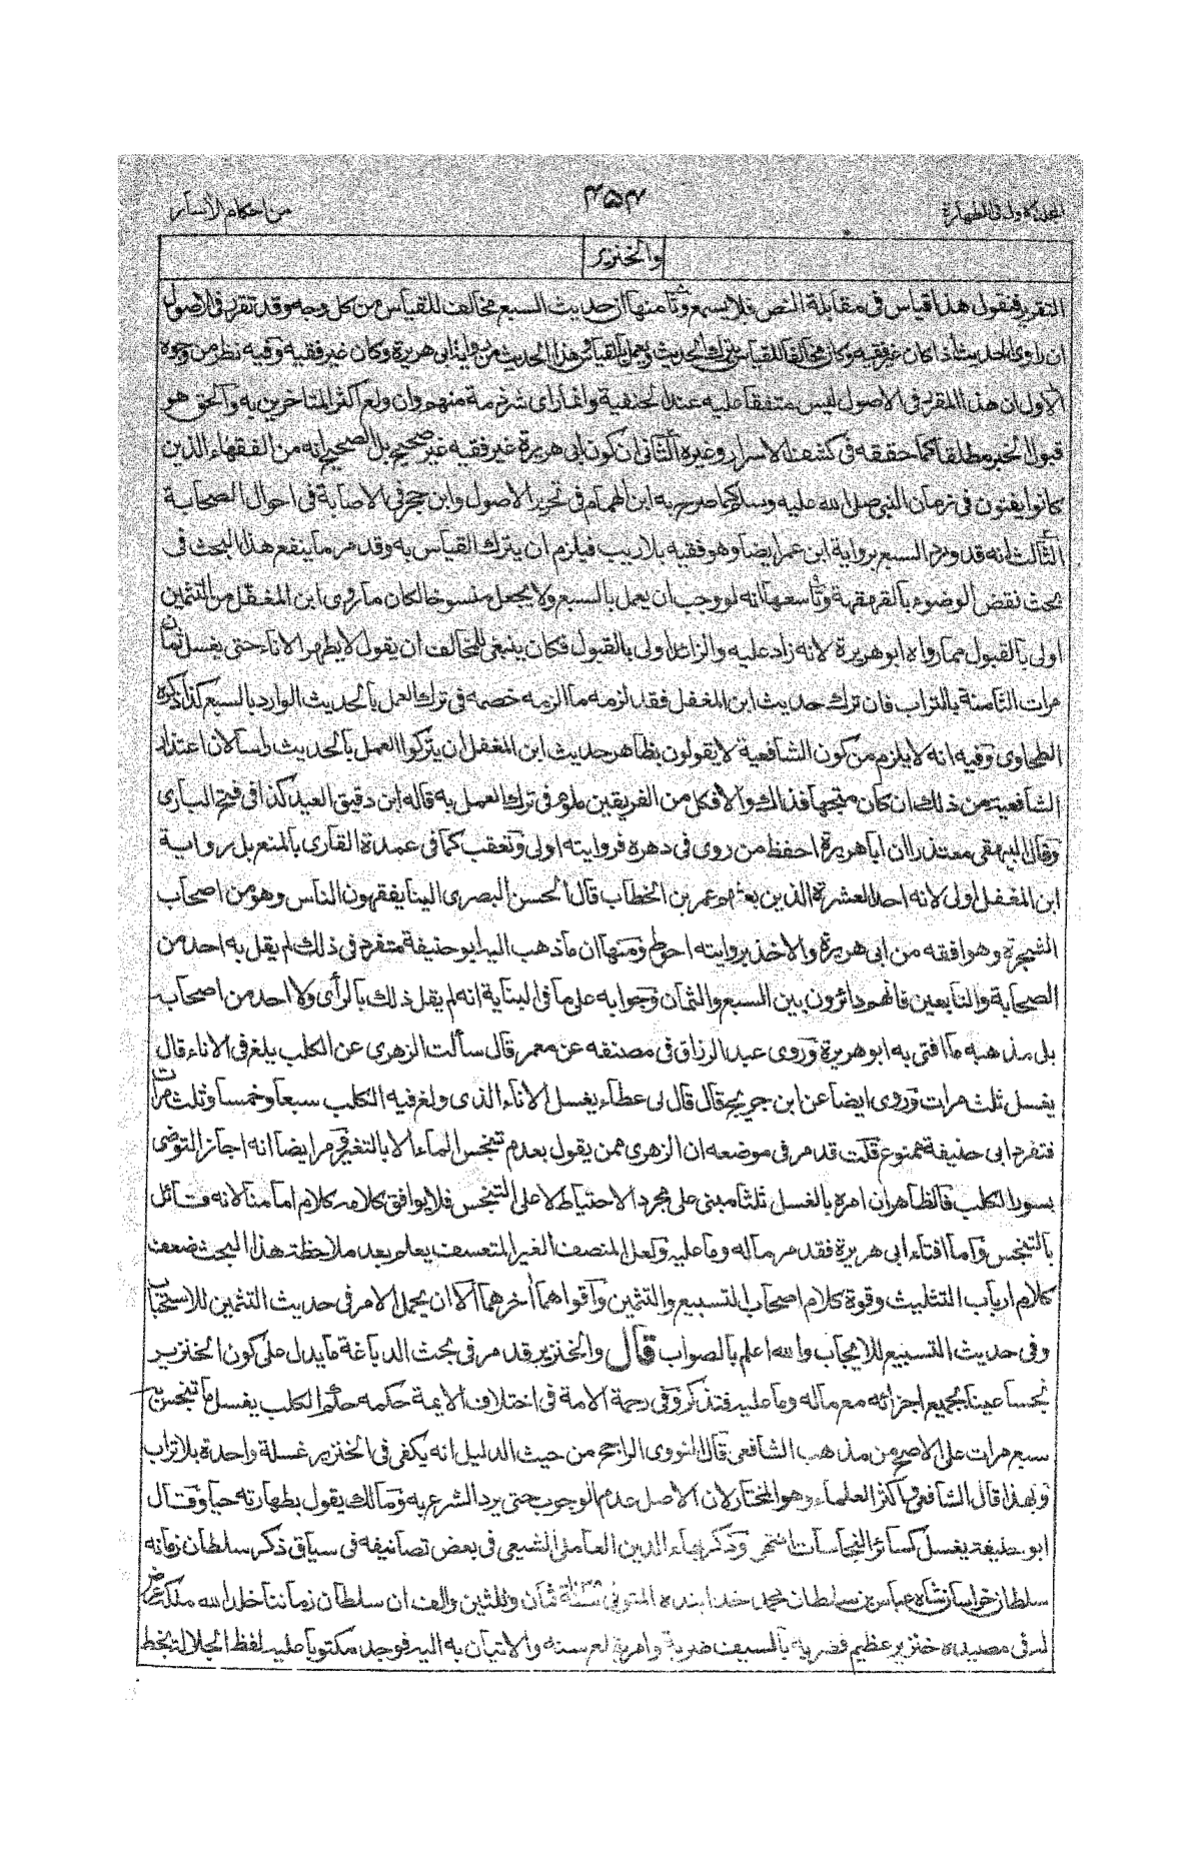 المجلد الاول فى الطهارة
۴۵۴
من احكام الأسآر
والخنزير
التقرير فنقول هذا قياس فى مقابلة النص فلا يسمع وثامنها ان حديث السبع مخالف للقياس من كل وجه وقد تقرر فى الاصول
ان راوى الحديث اذا كان غير فقيه وكان مخالفا للقياس يترك الحديث ويعمل بالقياس وهذا الحديث من رواية ابى هريرة وكان غير فقيه وفيه نظر من وجوه
الاول ان هذا المقرر فى الاصول ليس متفقا عليه عند الحنفية وانما راى شرذمة منهم وان ولع اكثر المتاخرين به والحق هو
قبول الخبر مطلقا كما حققه فى كشف الاسرار وغيره الثانى ان كون ابى هريرة غير فقيه غير صحيح بل الصحيح انه من الفقهاء الذين
كانوا يفتون فى زمان النبى صلى الله عليه وسلم كما صرح به ابن الهمام فى تحرير الاصول وابن حجر فى الاصابة فى احوال الصحابة
الثالث انه قد ورد السبع برواية ابن عمر ايضا وهو فقيه بلا ريب فيلزم ان يترك القياس به وقد مر ما ينفع هذا البحث فى
بحث نقض الوضوء بالقهقهة وتاسعها انه لو وجب ان يعمل بالسبع ولا يجعل منسوخا لكان ما روى ابن المغفل من التثمين
اولى بالقبول مما رواه ابو هريرة لانه زاد عليه والزائد اولى بالقبول فكان ينبغى للمخالف ان يقول لا يطهر الاناء حتى يغسل ثمان
مرات الثامنة بالتراب فان ترك حديث ابن المغفل فقد لزمه ما الزمه خصمه فى ترك العمل بالحديث الوارد بالسبع كذا ذكره
الطحاوى وفيه انه لا يلزم من كون الشافعية لا يقولون بظاهر حديث ابن المغفل ان يتركوا العمل بالحديث راسا لان اعتذار
الشافعية من ذلك ان كان متجها فذاك والا فكل من الفريقين ملوم فى ترك العمل به قاله ابن دقيق العيد كذا فى فتح البارى
وقال البيهقى معتذرا ان ابا هريرة احفظ من روى فى دهره فروايته اولى وتعقب كما فى عمدة القارى بالمنع بل رواية
ابن المغفل اولى لانه احد العشرة الذين بعثهم عمر بن الخطاب قال الحسن البصرى الينا يفقهون الناس وهو من اصحاب
الشجرة وهو افقه من ابى هريرة والاخذ بروايته احوط ومنها ان ما ذهب اليه ابو حنيفة متفرد فى ذلك لم يقل به احد من
الصحابة والتابعين فانهم دائرون بين السبع والثمان وجوابه على ما فى البناية انه لم يقل ذلك بالرأى ولا احد من اصحاب
بل مذهبه ما افتى به ابو هريرة وروى عبد الرزاق فى مصنفه عن معمر قال سألت الزهرى عن الكلب يلغ فى الاناء قال
يغسل ثلث مرات وروى ايضا عن ابن جريج قال قال لى عطاء يغسل الاناء الذى ولغ فيه الكلب سبعا وخمسا وثلث مرات
فتفرد ابى حنيفة ممنوع قلت قد مر فى موضعه ان الزهرى ممن يقول بعدم تنجس الماء الا بالتغير ومر ايضا انه اجاز التوضى
بسور الكلب فالظاهر ان امره بالغسل ثلثا مبنى على مجرد الاحتياط لا على التنجس فلا يوافق كلامه كلام امامنا لانه قائل
بالتنجس واما افتاء ابى هريرة فقد مر ما له وما عليه ولعل المنصف الغير المتعسف يعلم بعد ملاحظة هذا البحث ضعف
كلام ارباب التثليث وقوة كلام اصحاب التسبيع والتثمين واقواهما أخرهما الا ان يحمل الامر فى حديث التثمين للاستحباب
وفى حديث التسبيع للايجاب والله اعلم بالصواب قال والخنزير قد مر فى بحث الدباغة ما يدل على كون الخنزير
نجسا عينا بجميع اجزائه مع ماله وما عليه فتذكر وفى رحمة الامة فى اختلاف الايمة حكمه حكم الكلب يغسل ما تنجس به
سبع مرات على الاصح من مذهب الشافعى قال النووى الراجح من حيث الدليل انه يكفى فى الخنزير غسلة واحدة بلا تراب
وبهذا قال الشافعى واكثر العلماء وهو المختار لان الاصل عدم الوجوب حتى يرد الشرع به ومالك يقول بطهارته حيا وقال
ابو حنيفة يغسل كسائر النجاسات انتهى وذكر بهاء الدين العاملى الشيعى فى بعض تصانيفه فى سياق ذكر سلطان زمانه
سلطان خراسان شاه عباس بن سلطان محمد خدا بنده المتوفى سنة ثمان وثلثين والف ان سلطان زماننا خلد الله ملكه عرض
له فى مصيده خنزير عظيم فضربه بالسيف ضربة وامر بقلع سنه والاتيان به اليه فوجد مكتوبا عليه لفظ الجلالة بخط